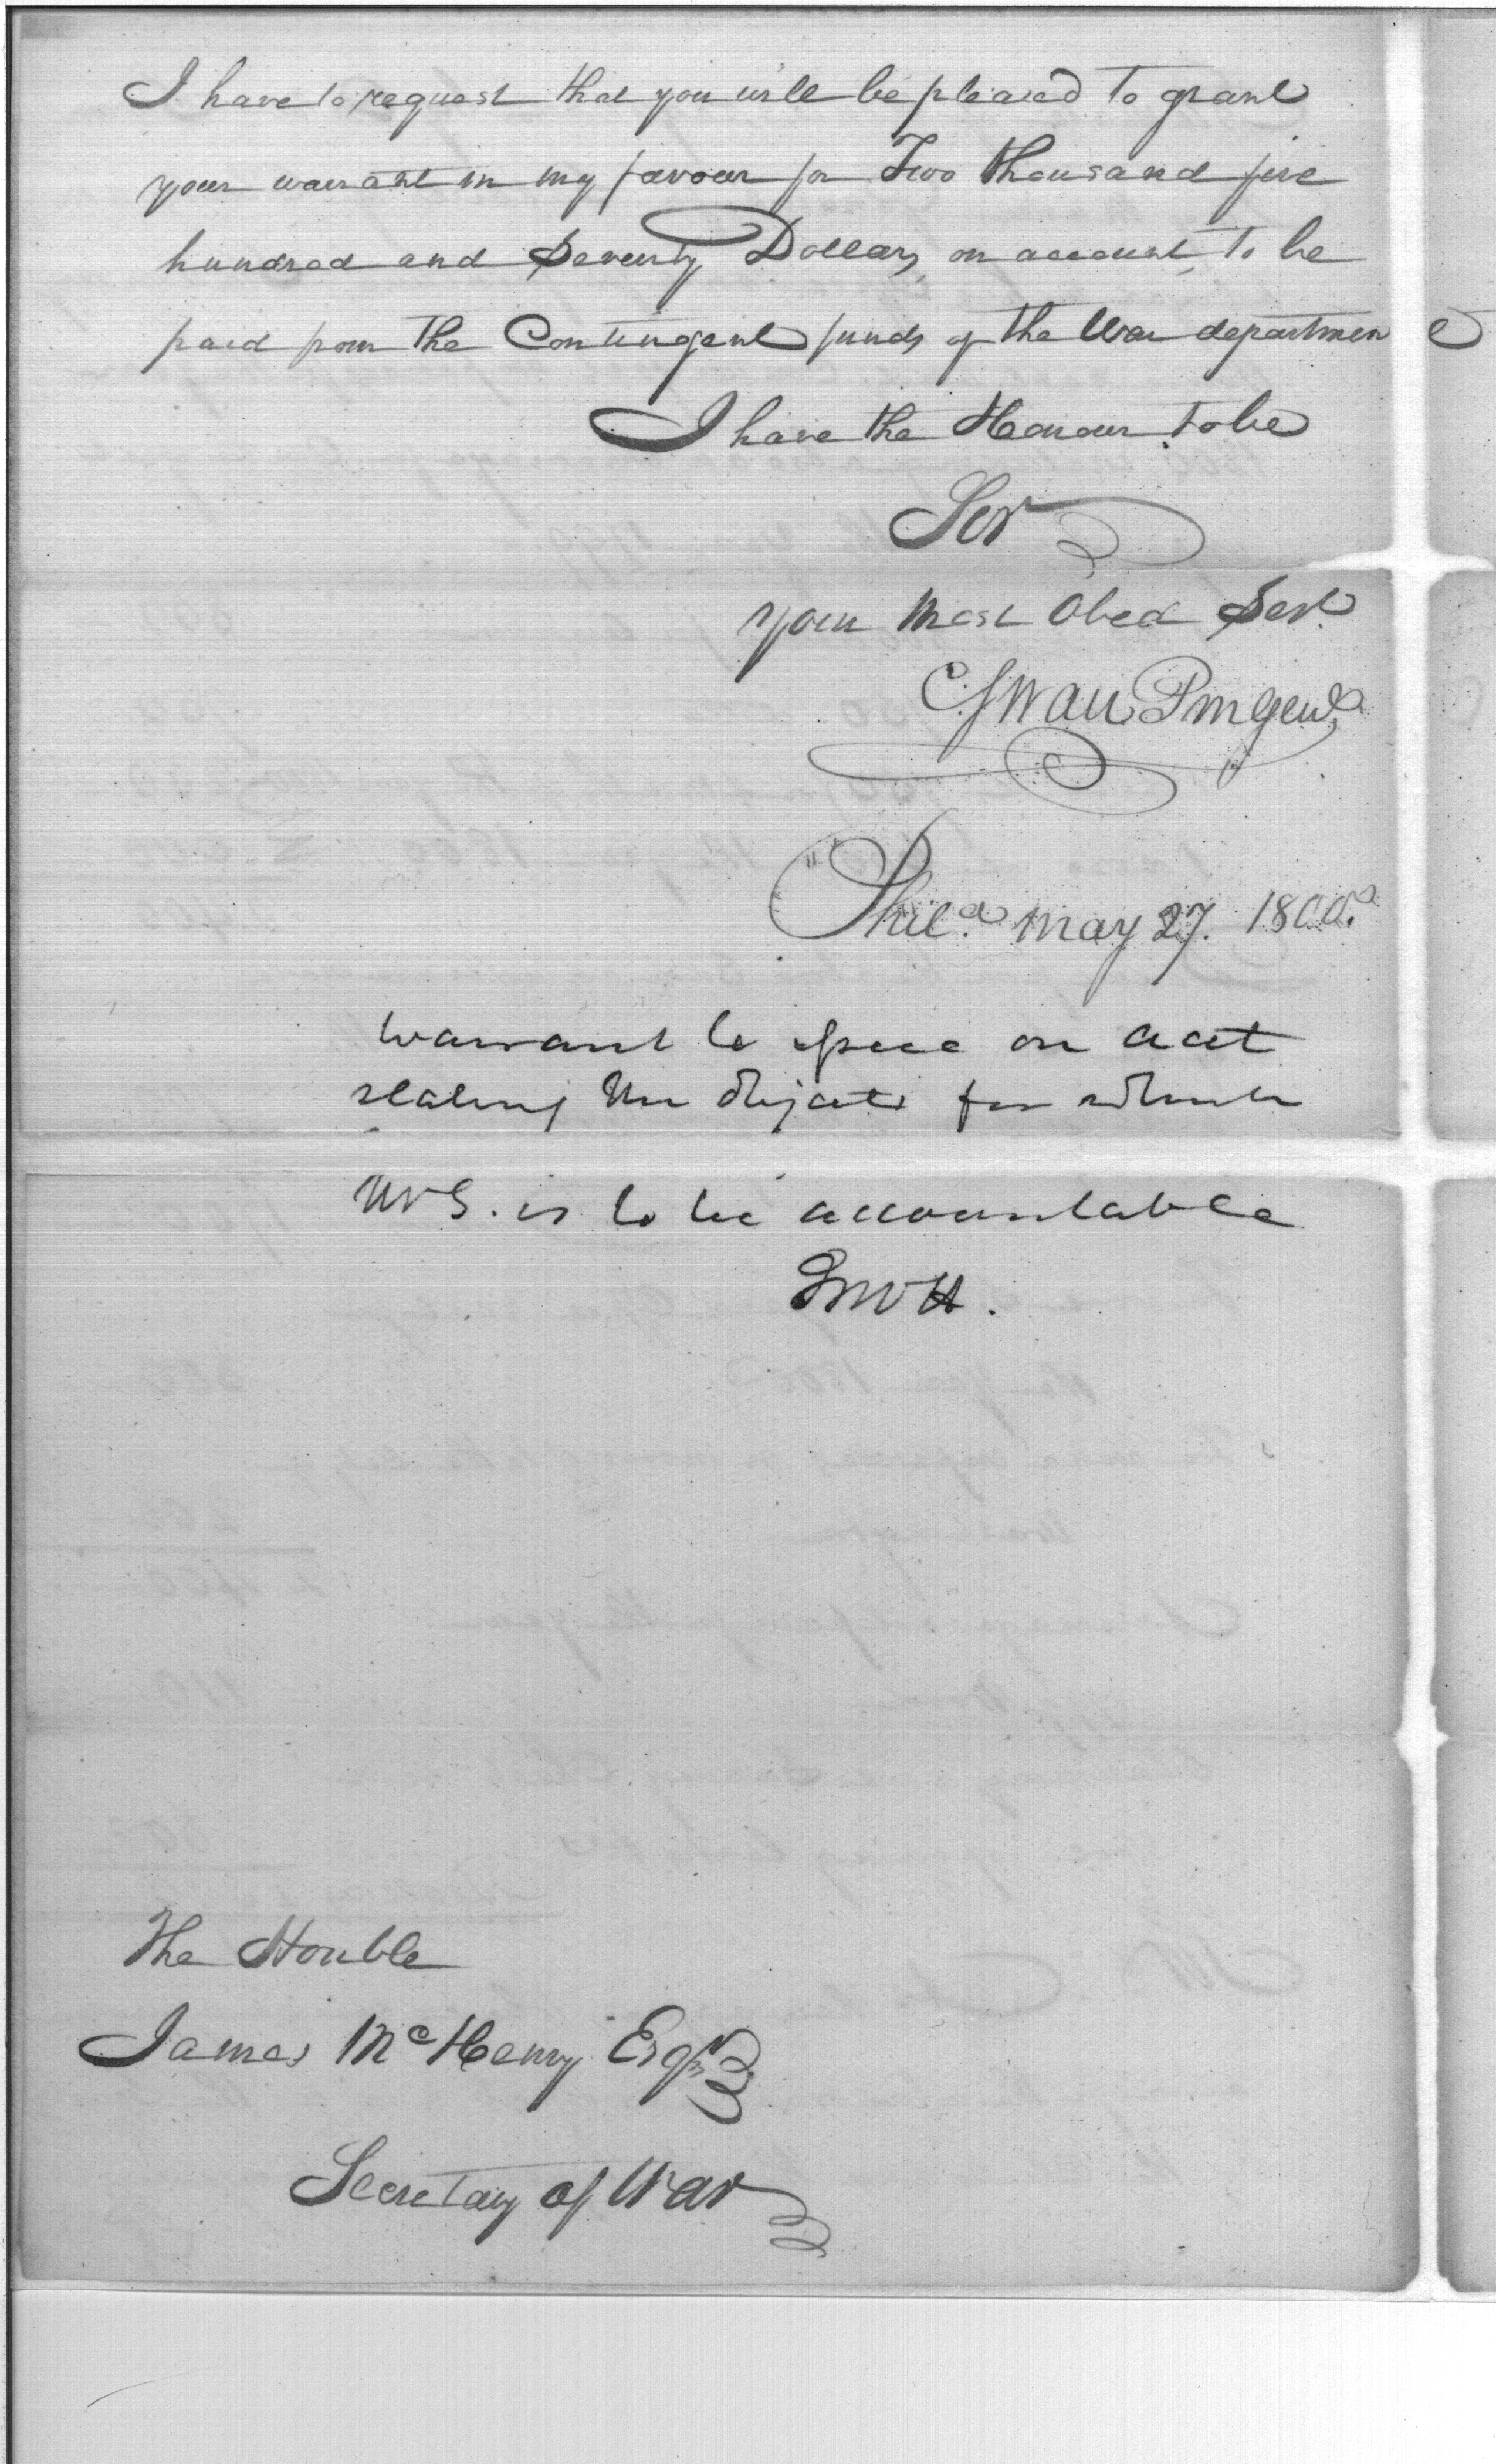 I have to request that you will be pleased to grant
your warrant in my favour for Two thousand five
hundred and Seventy Dollars, on account, to be
paid from the Contingent funds of the War department
I have the Honour to be
Sir
your Most Obed Servt.
C Swan PmGenl.
Phila. May 27. 1800.
warrant to issue on acct
stating the objects for which
Mr S. is to be accountable
JMcH.
The Honble
James McHenry Esqr
Secretary of War